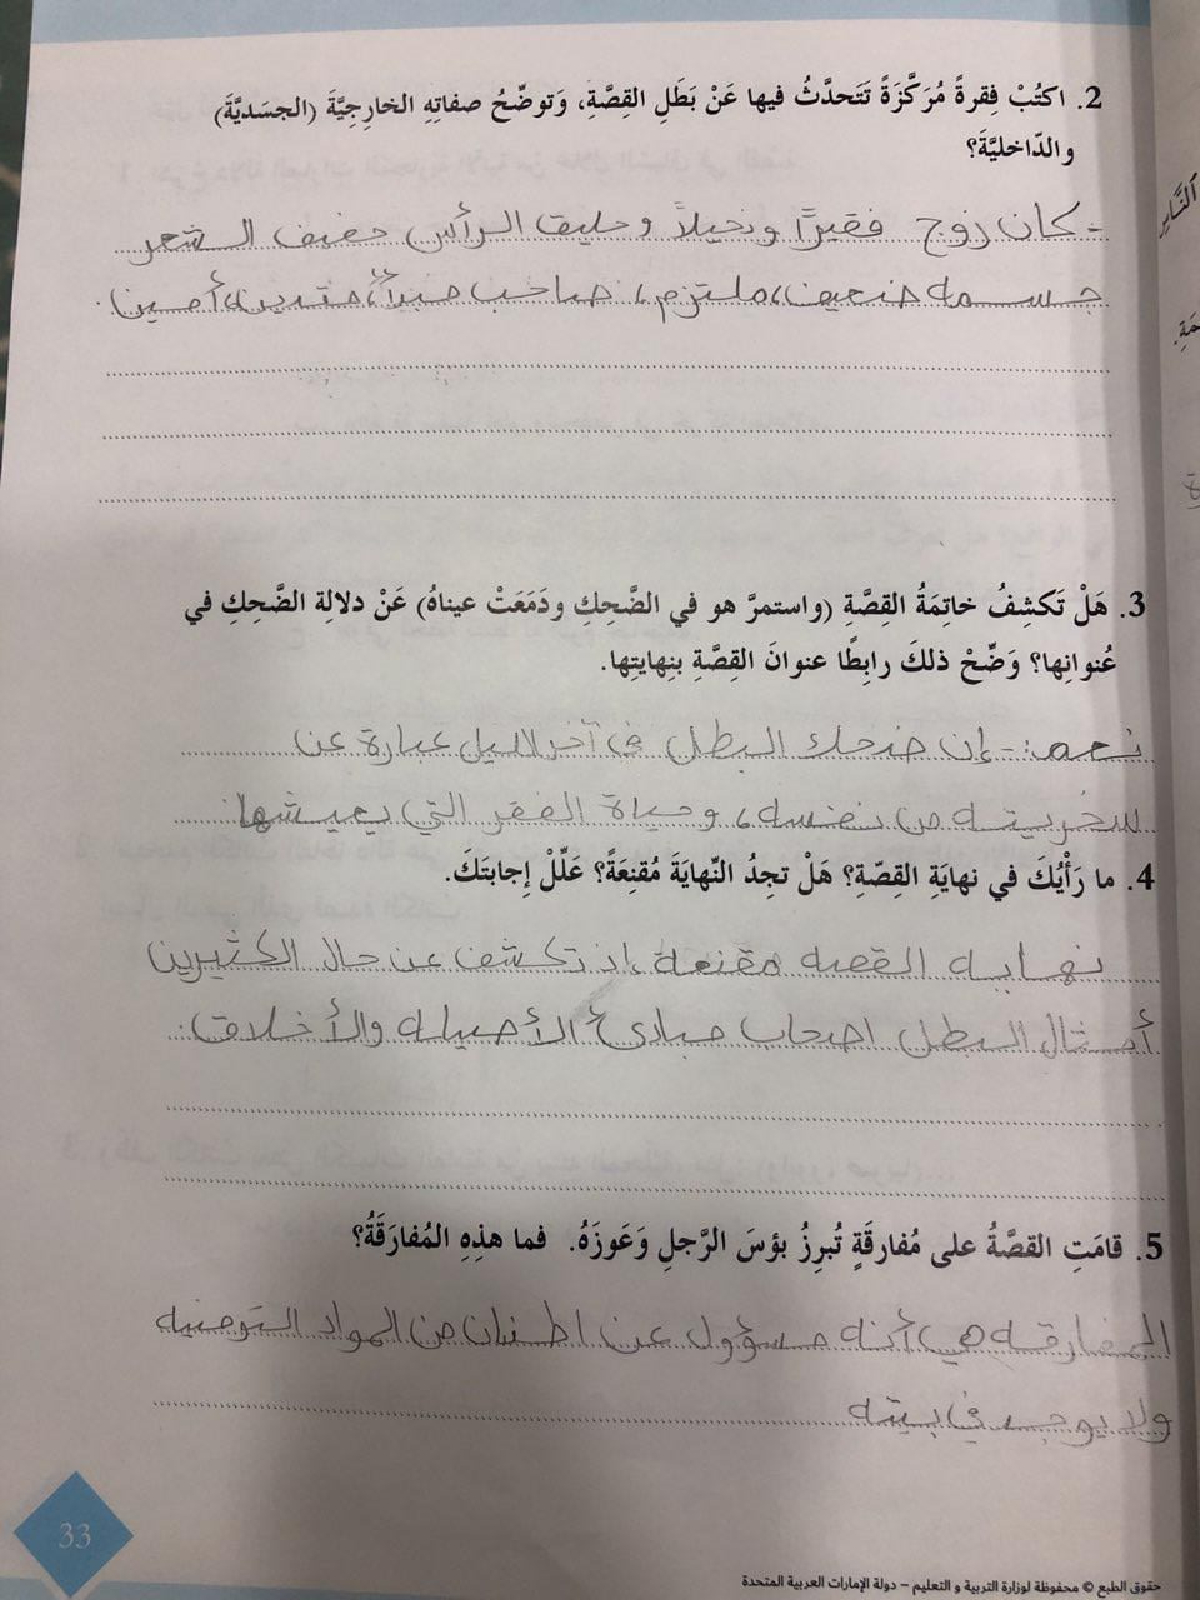 2. اكتُبْ فِقرةً مُرَكَّزَةً تَتَحدَّثُ فيها عَنْ بَطَلِ القِصَّةِ، وَتوضّحُ صفاتِهِ الخارِجِيَّةَ (الجسَديَّةَ)
والدّاخليَّةَ؟
- كان زوج فقيرًا ونحيلاً وحليق الرأس خفيف الشعر
جسمه ضعيف، ملتزم، صاحب مبدأ، متدين، أمين.
3. هَلْ تَكشِفُ خاتِمَةُ القِصَّةِ (واستمرَّ هو في الضَّحِكِ ودَمَعَتْ عيناهُ) عَنْ دلالِة الضَّحِكِ في
عُنوانِها؟ وَضّحْ ذلكَ رابِطًا عنوانَ القِصَّةِ بنِهايتِها.
نعم :- إن ضحك البطل في آخر الليل عبارة عن
سخريته من نفسه، وحياة الفقر التي يعيشها.
4. ما رَأْيُكَ في نهايَةِ القِصّةِ؟ هَلْ تجِدُ النّهايَةَ مُقنِعَةً؟ عَلّلْ إجابتَكَ.
نهايه القصه مقنعة إذ تكشف عن حال الكثيرين
أمثال البطل اصحاب مبادئ الأصيله والأخلاق.
5. قامَتِ القصَّةُ على مُفارقَةٍ تُبرِزُ بؤسَ الرَّجلِ وَعَوزَهُ. فما هذِهِ المُفارَقَةُ؟
المفارقه هي أنه مسؤول عن اطنان من المواد التومنيه
ولا يوجد في بيته
33
حقوق الطبع © محفوظة لوزارة التربية و التعليم – دولة الإمارات العربية المتحدة